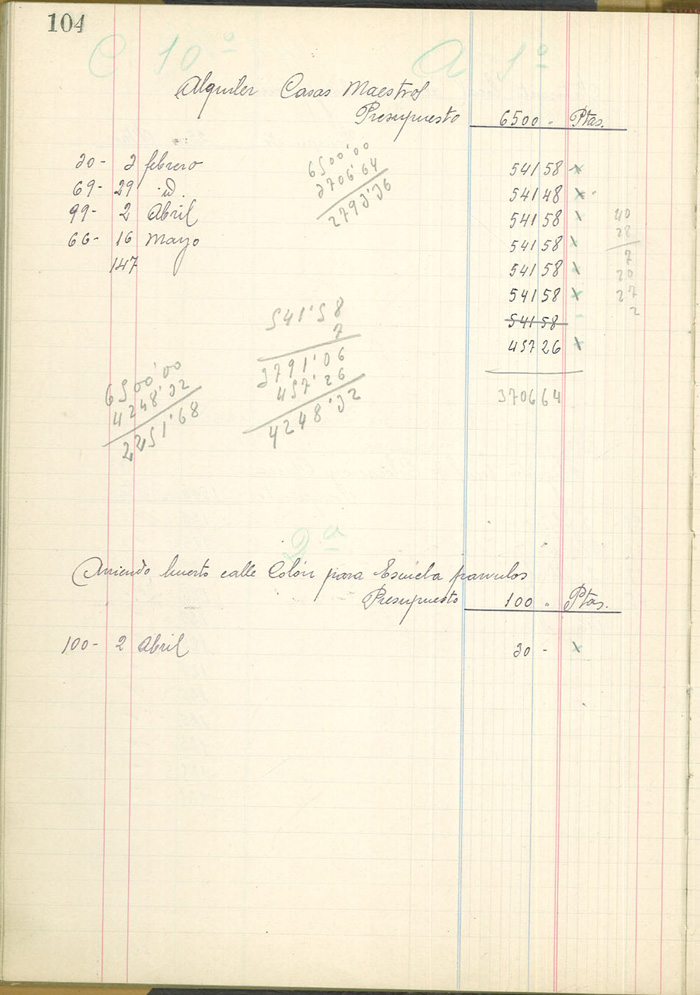 104
C 10º A 1º
Alquiler Casas Maestros
Presupuesto 6500 - Ptas.
30 - 3 febrero 541 58 x
69 - 29 id. 541 48 x
99 - 2 Abril 541 58 x
66 - 16 Mayo 541 58 x
147 541 58 x
541 58 x
541 58
457 26 x
3706 64
6500'00
3706'64
2793'36
40
28
7
20
27
2
541'58
7
3791'06
457'26
4248'32
6500'00
4248'32
2251'68
2ª
Arriendo huerto calle Colón para Escuela parvulos
Presupuesto 100 - Ptas.
100 - 2 Abril 30 - x